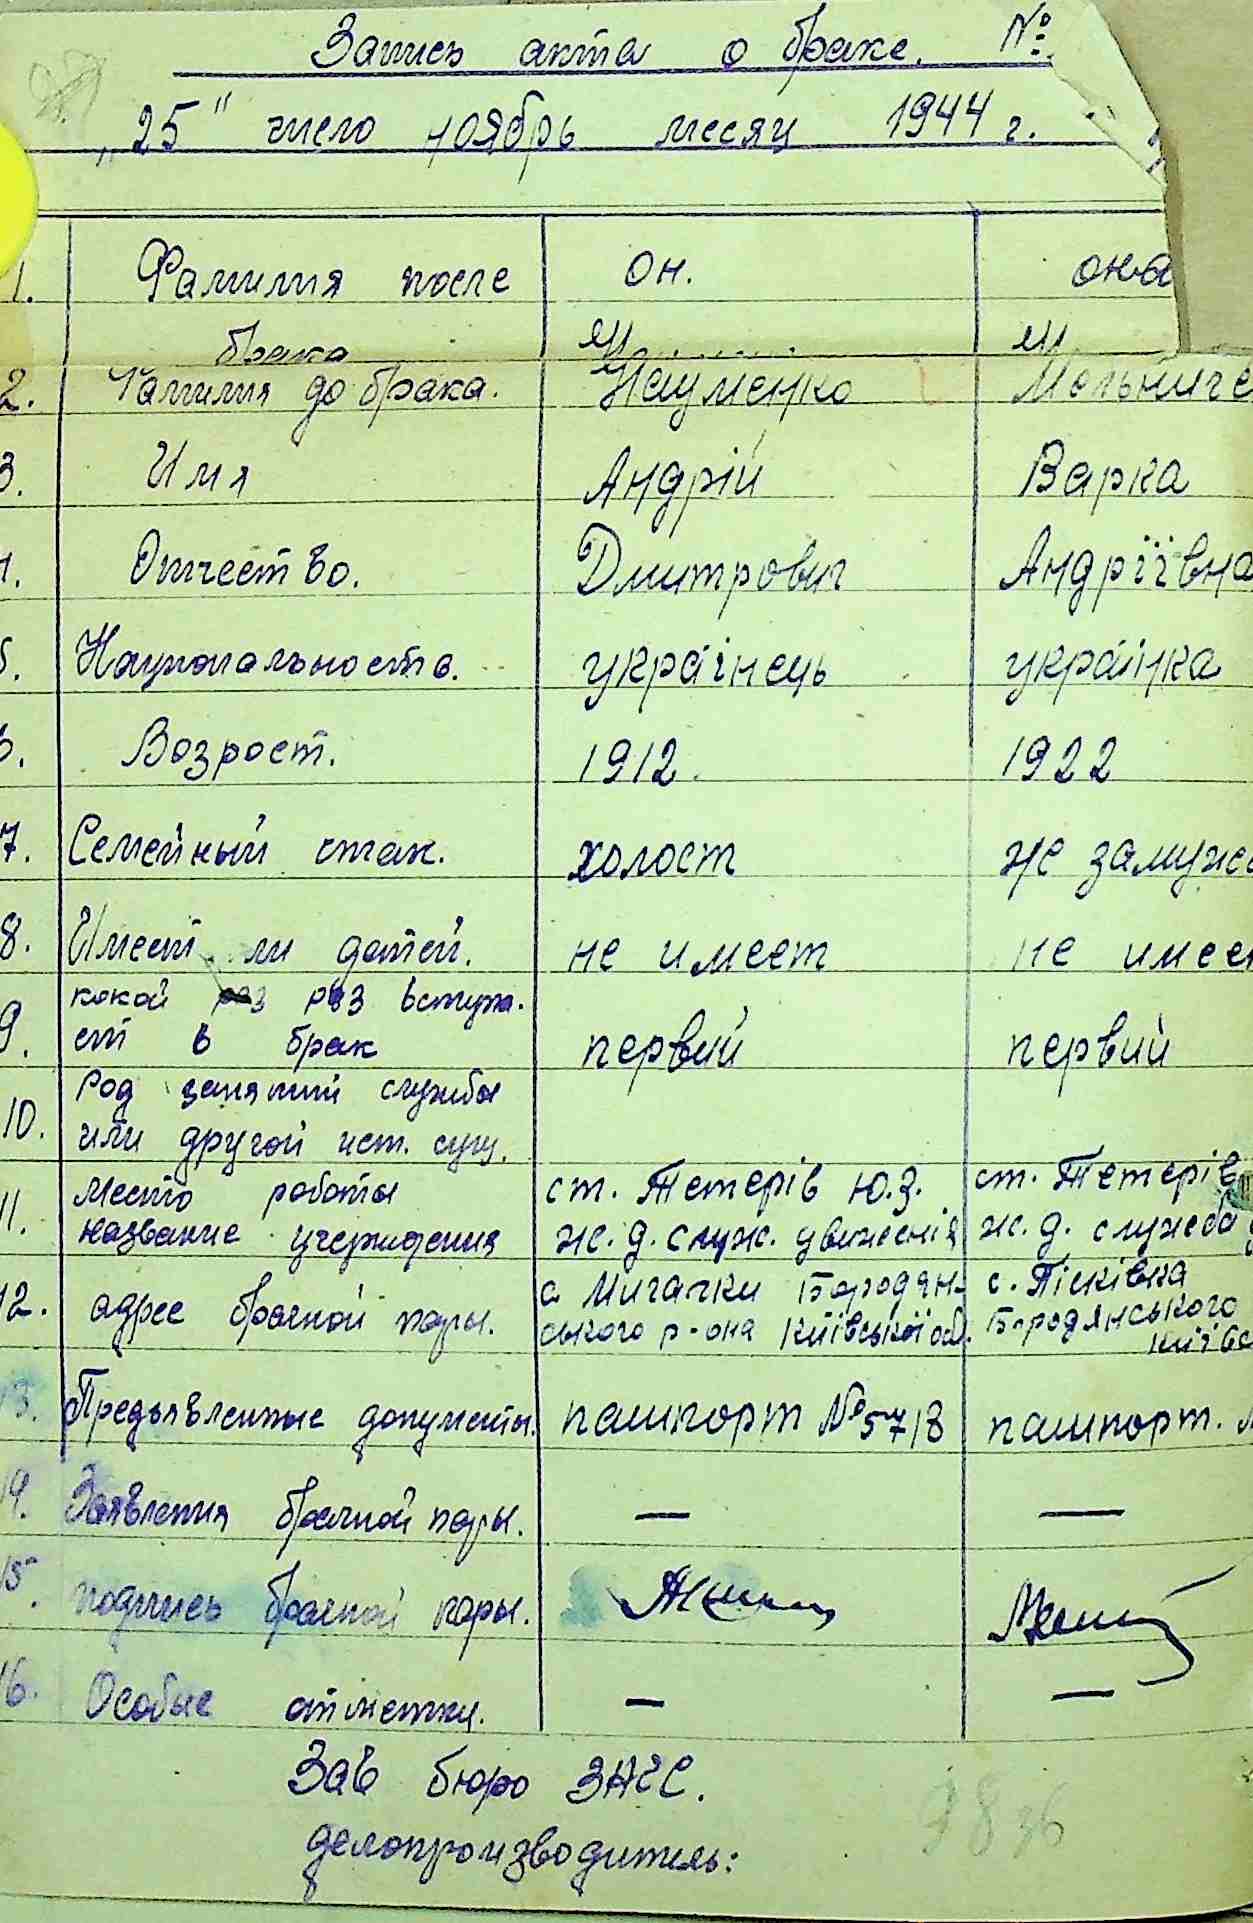 Запись акта о браке. №
„25" число ноябрь месяц 1944 г.
1. Фамилия после он. она
брака
2. Фамилия до брака. Науменко Мельниче
3. Имя Андрій Варка
4. Отчество. Дмитрович Андріївна
5. Национальность. українець українка
6. Возрост. 1912. 1922
7. Семейный стаж. холост не замуже
8. Имеет ли детей. не имеет не имеет
какой раз вступа-
9. ет в брак первий первий
Род занятий службы
10. или другой ист. сущ.
Место работы ст. Тетерів Ю.З. ст. Тетерів
11. название учерждения ж.д. служ. движенія ж.д. служба
12. адрес брачной пары. с Мигалки Бородян- с. Пісківка
ського р-она Київської об. Бородянського
Київс
13. Предъявленные документы. пашпорт №5718 пашпорт.
14. Заявления брачной пары. — —
15. подпись брачной пары.
16. Особые отметки. — —
Зав бюро ЗАГС.
делопроизводитель: